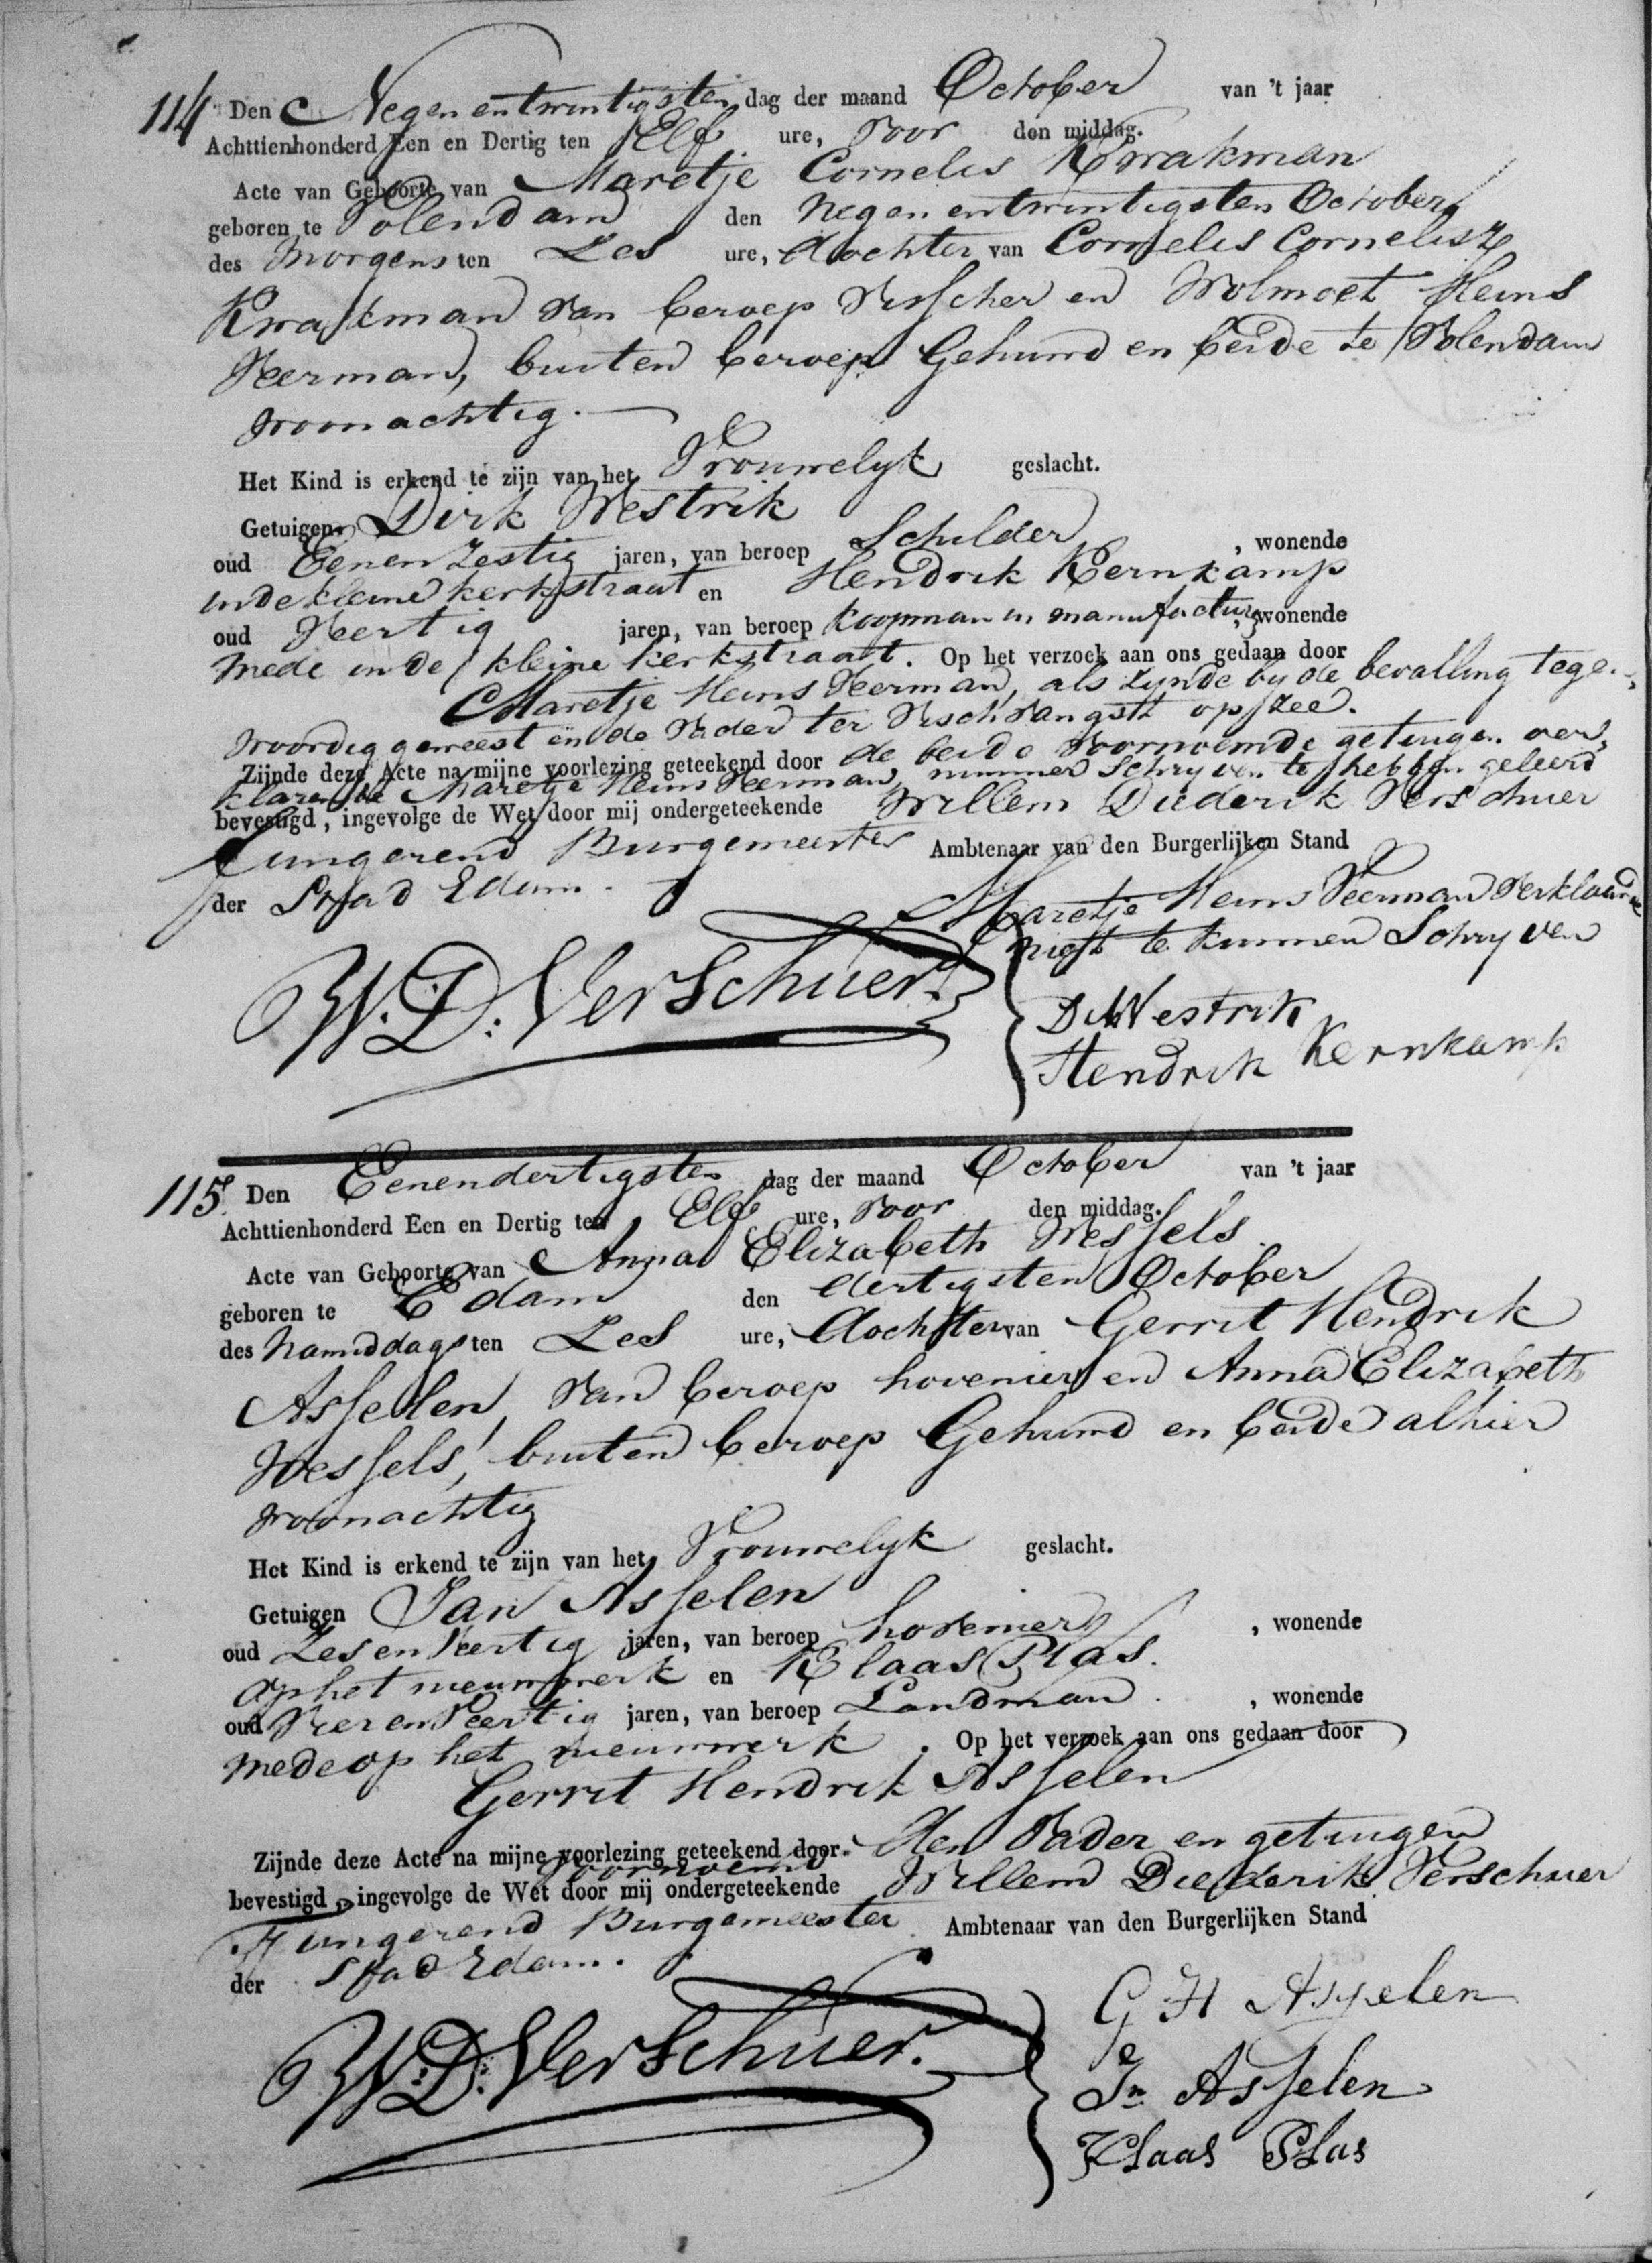 114 Den Negenentwintigsten dag der maand October van 't jaar
Achttienhonderd Een en Dertig ten Elf ure, voor den middag.
Acte van Geboorte van Maretje Cornelis Kwakman
geboren te Volendam den negen entwintigsten October
des morgens ten Zes ure, dochter van Cornelis Cornelisz
Kwakman van beroep Visscher en Wolmoet Heins
Veerman, buiten beroep Gehuwd en beide te Volendam
woonachtig.
Het Kind is erkend te zijn van het Vrouwelyk geslacht.
Getuigen Dirk Westrik
oud Eenenzestig jaren, van beroep Schilder, wonende
in de kleine kerkstraat en Hendrik Kernkamp
oud Veertig jaren, van beroep Koopman in manufactur, wonende
mede in de kleine kerkstraat. Op het verzoek aan ons gedaan door
Maretje Heins Veerman, als zynde by de bevalling tegen,
woordig geweest en de Vader ter Vischvangst op zee.
Zijnde deze Acte na mijne voorlezing geteekend door de beide voornoemde getuigen ver,
klarende Maretje Heins Veerman nimmer schryven te hebben geleerd
bevestigd, ingevolge de Wet door mij ondergeteekende Willem Diederik Verschuer
fungerend Burgemeester Ambtenaar van den Burgerlijken Stand
der Stad Edam.
Maretje Heins Veerman Verklaarde
niest te kunnen Schryven
W. D: Verschuer.
D Westrik
Hendrik Kernkamp
115. Den Eenendertigsten dag der maand October van 't jaar
Achttienhonderd Een en Dertig ten Elf ure, voor den middag.
Acte van Geboorte van Anna Elizabeth Wessels
geboren te Edam den dertigsten October
des namiddags ten Zes ure, dochter van Gerrit Hendrik
Asselen, van beroep hovenier en Anna Elizabeth
Wessels, buiten beroep Gehuwd en beide alhier
woonachtig
Het Kind is erkend te zijn van het Vrouwelyk geslacht.
Getuigen Jan Asselen
oud Zesenveertig jaren, van beroep hovenier, wonende
op het nieuwwerk en Klaas Plas.
oud Vierenveertig jaren, van beroep Landman, wonende
mede op het nieuwwerk. Op het verzoek aan ons gedaan door
Gerrit Hendrik Asselen
Zijnde deze Acte na mijne voorlezing geteekend door den Vader en getuigen
voornoemd
bevestigd, ingevolge de Wet door mij ondergeteekende Willem Diederik Verschuer
Fungerend Burgemeester Ambtenaar van den Burgerlijken Stand
der Stad Edam.
G H Asselen
W: D: Verschuer.
Jn Asselen
Klaas Plas